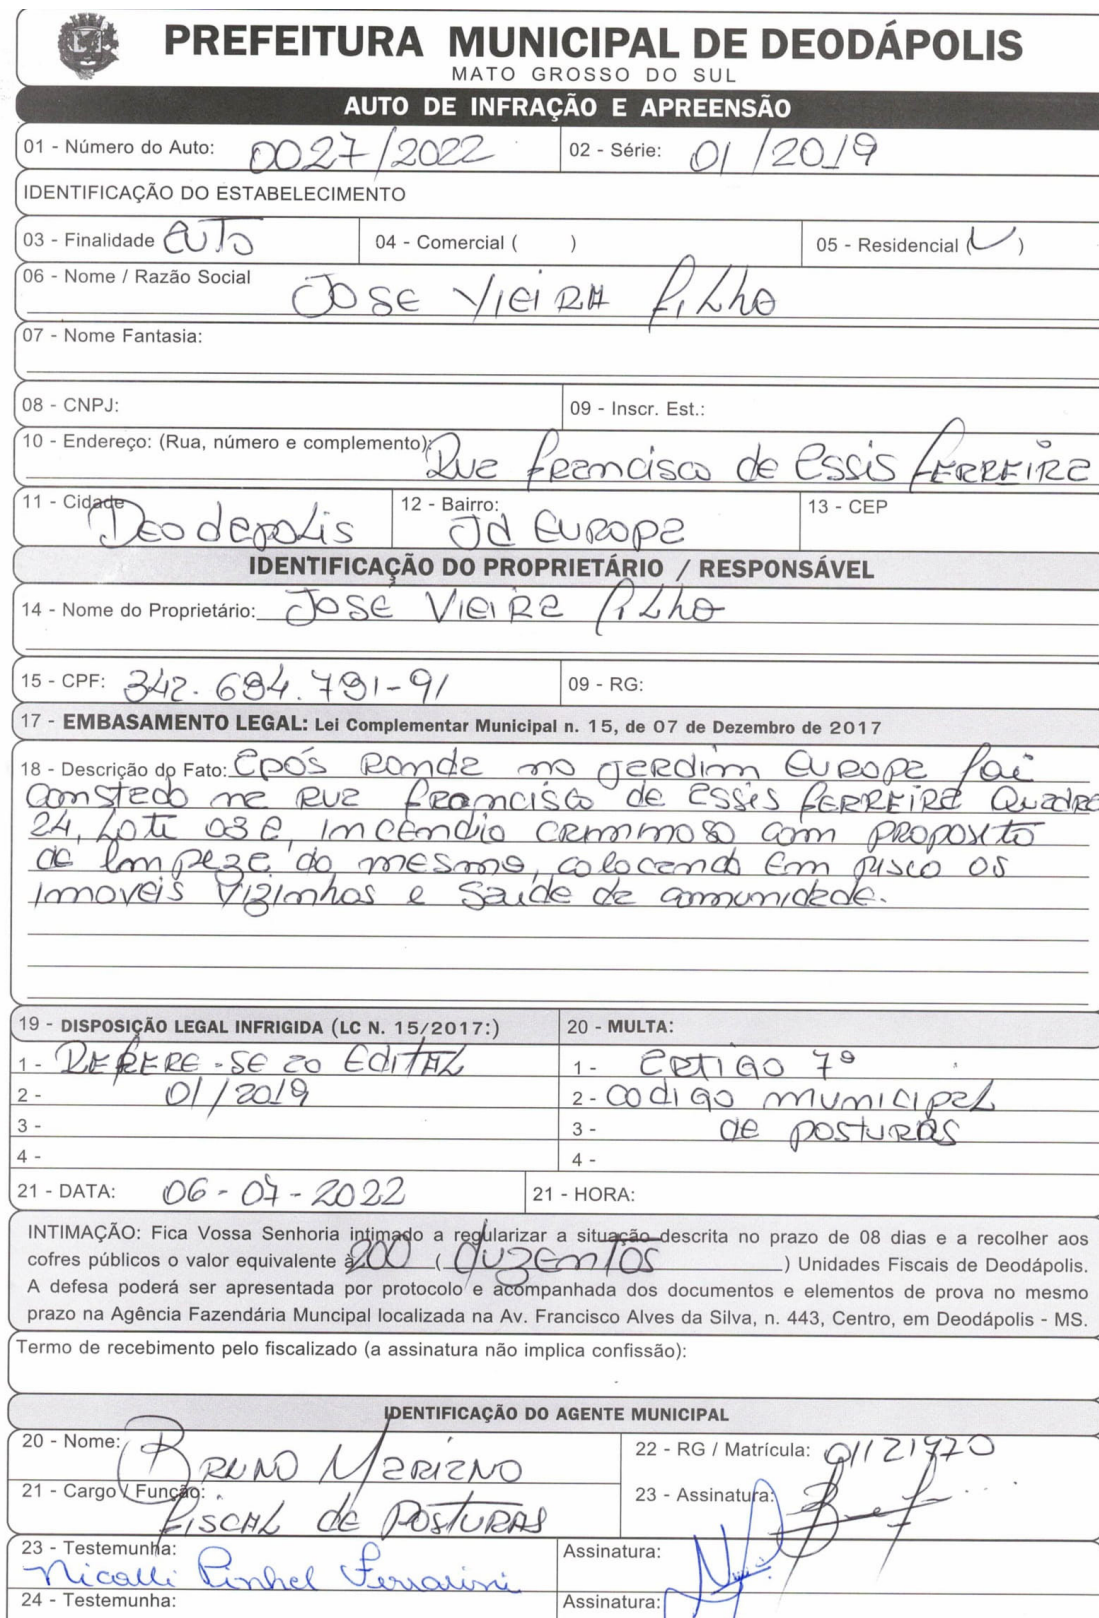 PREFEITURA MUNICIPAL DE DEODÁPOLIS
MATO GROSSO DO SUL
AUTO DE INFRAÇÃO E APREENSÃO
01 - Número do Auto: 0027/2022 02 - Série: 01/2019
IDENTIFICAÇÃO DO ESTABELECIMENTO
03 - Finalidade auto 04 - Comercial ( ) 05 - Residencial (✓)
06 - Nome / Razão Social
Jose Vieira filho
07 - Nome Fantasia:
08 - CNPJ: 09 - Inscr. Est.:
10 - Endereço: (Rua, número e complemento): Rua francisco de assis ferreira
11 - Cidade Deodapolis 12 - Bairro: Jd europa 13 - CEP
IDENTIFICAÇÃO DO PROPRIETÁRIO / RESPONSÁVEL
14 - Nome do Proprietário: José Vieira filho
15 - CPF: 342.694.791-91 09 - RG:
17 - EMBASAMENTO LEGAL: Lei Complementar Municipal n. 15, de 07 de Dezembro de 2017
18 - Descrição do Fato: após ronda no jardim europa foi
constado na rua francisco de assis ferreira Quadra
24, Lote 03 a, incêndio criminoso com proposito
de limpeza do mesmo, colocando em risco os
imoveis vizinhos e saude da comunidade.
19 - DISPOSIÇÃO LEGAL INFRIGIDA (LC N. 15/2017:) 20 - MULTA:
1 - Refere-se ao Edital 1 - artigo 7º
2 - 01/2019 2 - codigo municipal
3 - 3 - de posturas
4 - 4 -
21 - DATA: 06-07-2022 21 - HORA:
INTIMAÇÃO: Fica Vossa Senhoria intimado a regularizar a situação descrita no prazo de 08 dias e a recolher aos
cofres públicos o valor equivalente à 200 ( duzentos ) Unidades Fiscais de Deodápolis.
A defesa poderá ser apresentada por protocolo e acompanhada dos documentos e elementos de prova no mesmo
prazo na Agência Fazendária Muncipal localizada na Av. Francisco Alves da Silva, n. 443, Centro, em Deodápolis - MS.
Termo de recebimento pelo fiscalizado (a assinatura não implica confissão):
IDENTIFICAÇÃO DO AGENTE MUNICIPAL
20 - Nome: Bruno Mariano 22 - RG / Matrícula: 01121970
21 - Cargo / Função: fiscal de Posturas 23 - Assinatura:
23 - Testemunha: Nicalli Pinhel Ferrarini Assinatura:
24 - Testemunha: Assinatura: